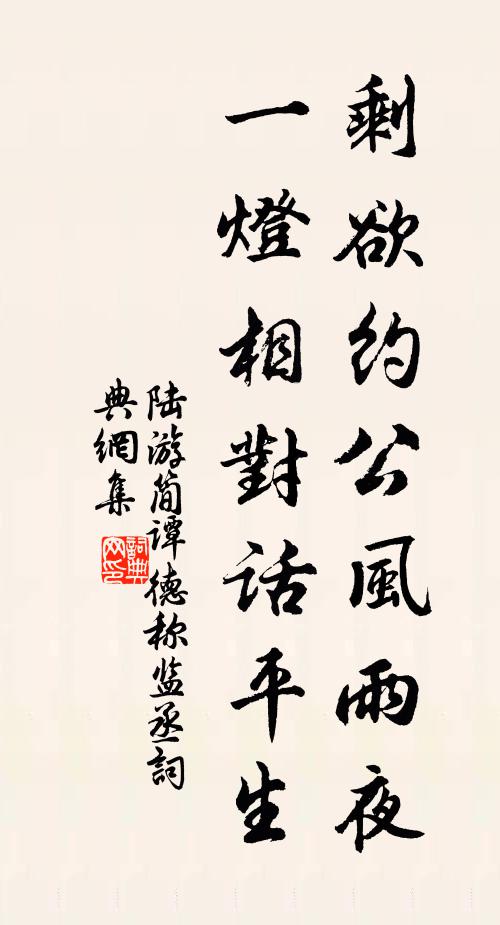 剩欲約公風雨夜
一燈相對話平生
陆游简谭德称监丞詞
典網集
詞典网印